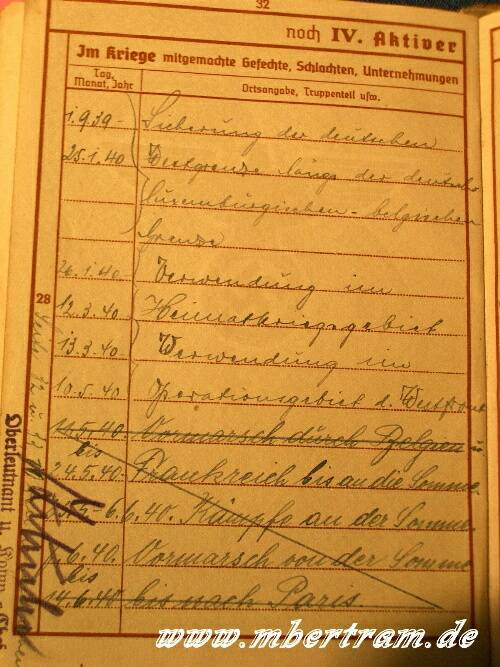 32
noch IV. Aktiver
Im Kriege mitgemachte Gefechte, Schlachten, Unternehmungen
Tag, Monat, Jahr
Ortsangabe, Truppenteil usw.
1.9.39 - Sicherung der deutschen
25.1.40 Westgrenze längs der deutsch
luxemburgischen - belgischen
Grenze
26.1.40 - Verwendung im
28
12.3.40 Heimatkriegsgebiet
13.3.40 - Verwendung im
10.5.40 Operationsgebiet d. Westfront
5.40 - Vormarsch durch Belgien u.
bis
24.5.40. Frankreich bis an die Somme.
5 - 6.6.40. Kämpfe an der Somme.
6.40. Vormarsch von der Somme
bis
14.6.40 bis nach Paris.
Oberleutnant u.
www.mbertram.de